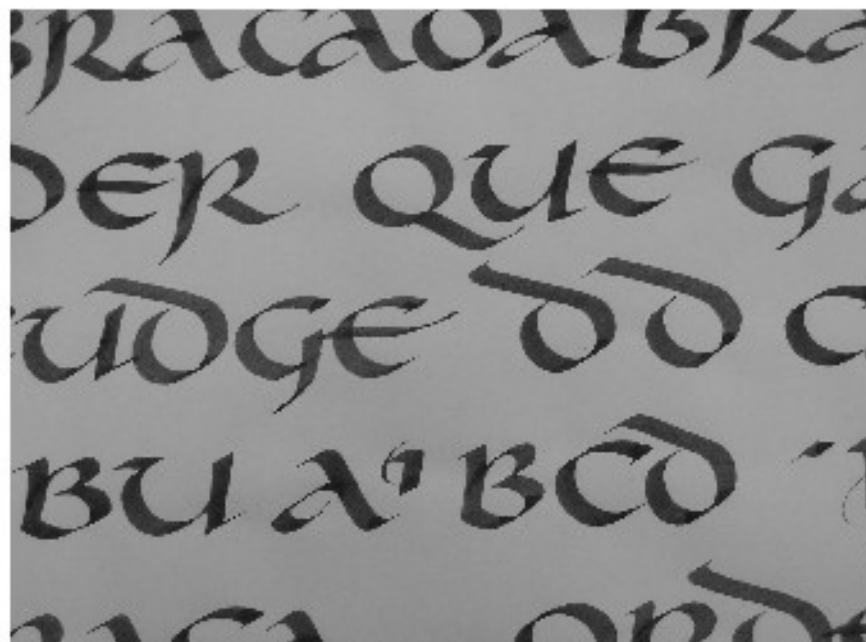 BRACADABRA
DER QUE GA
UDGE DD C
BU A' BCD
ORD